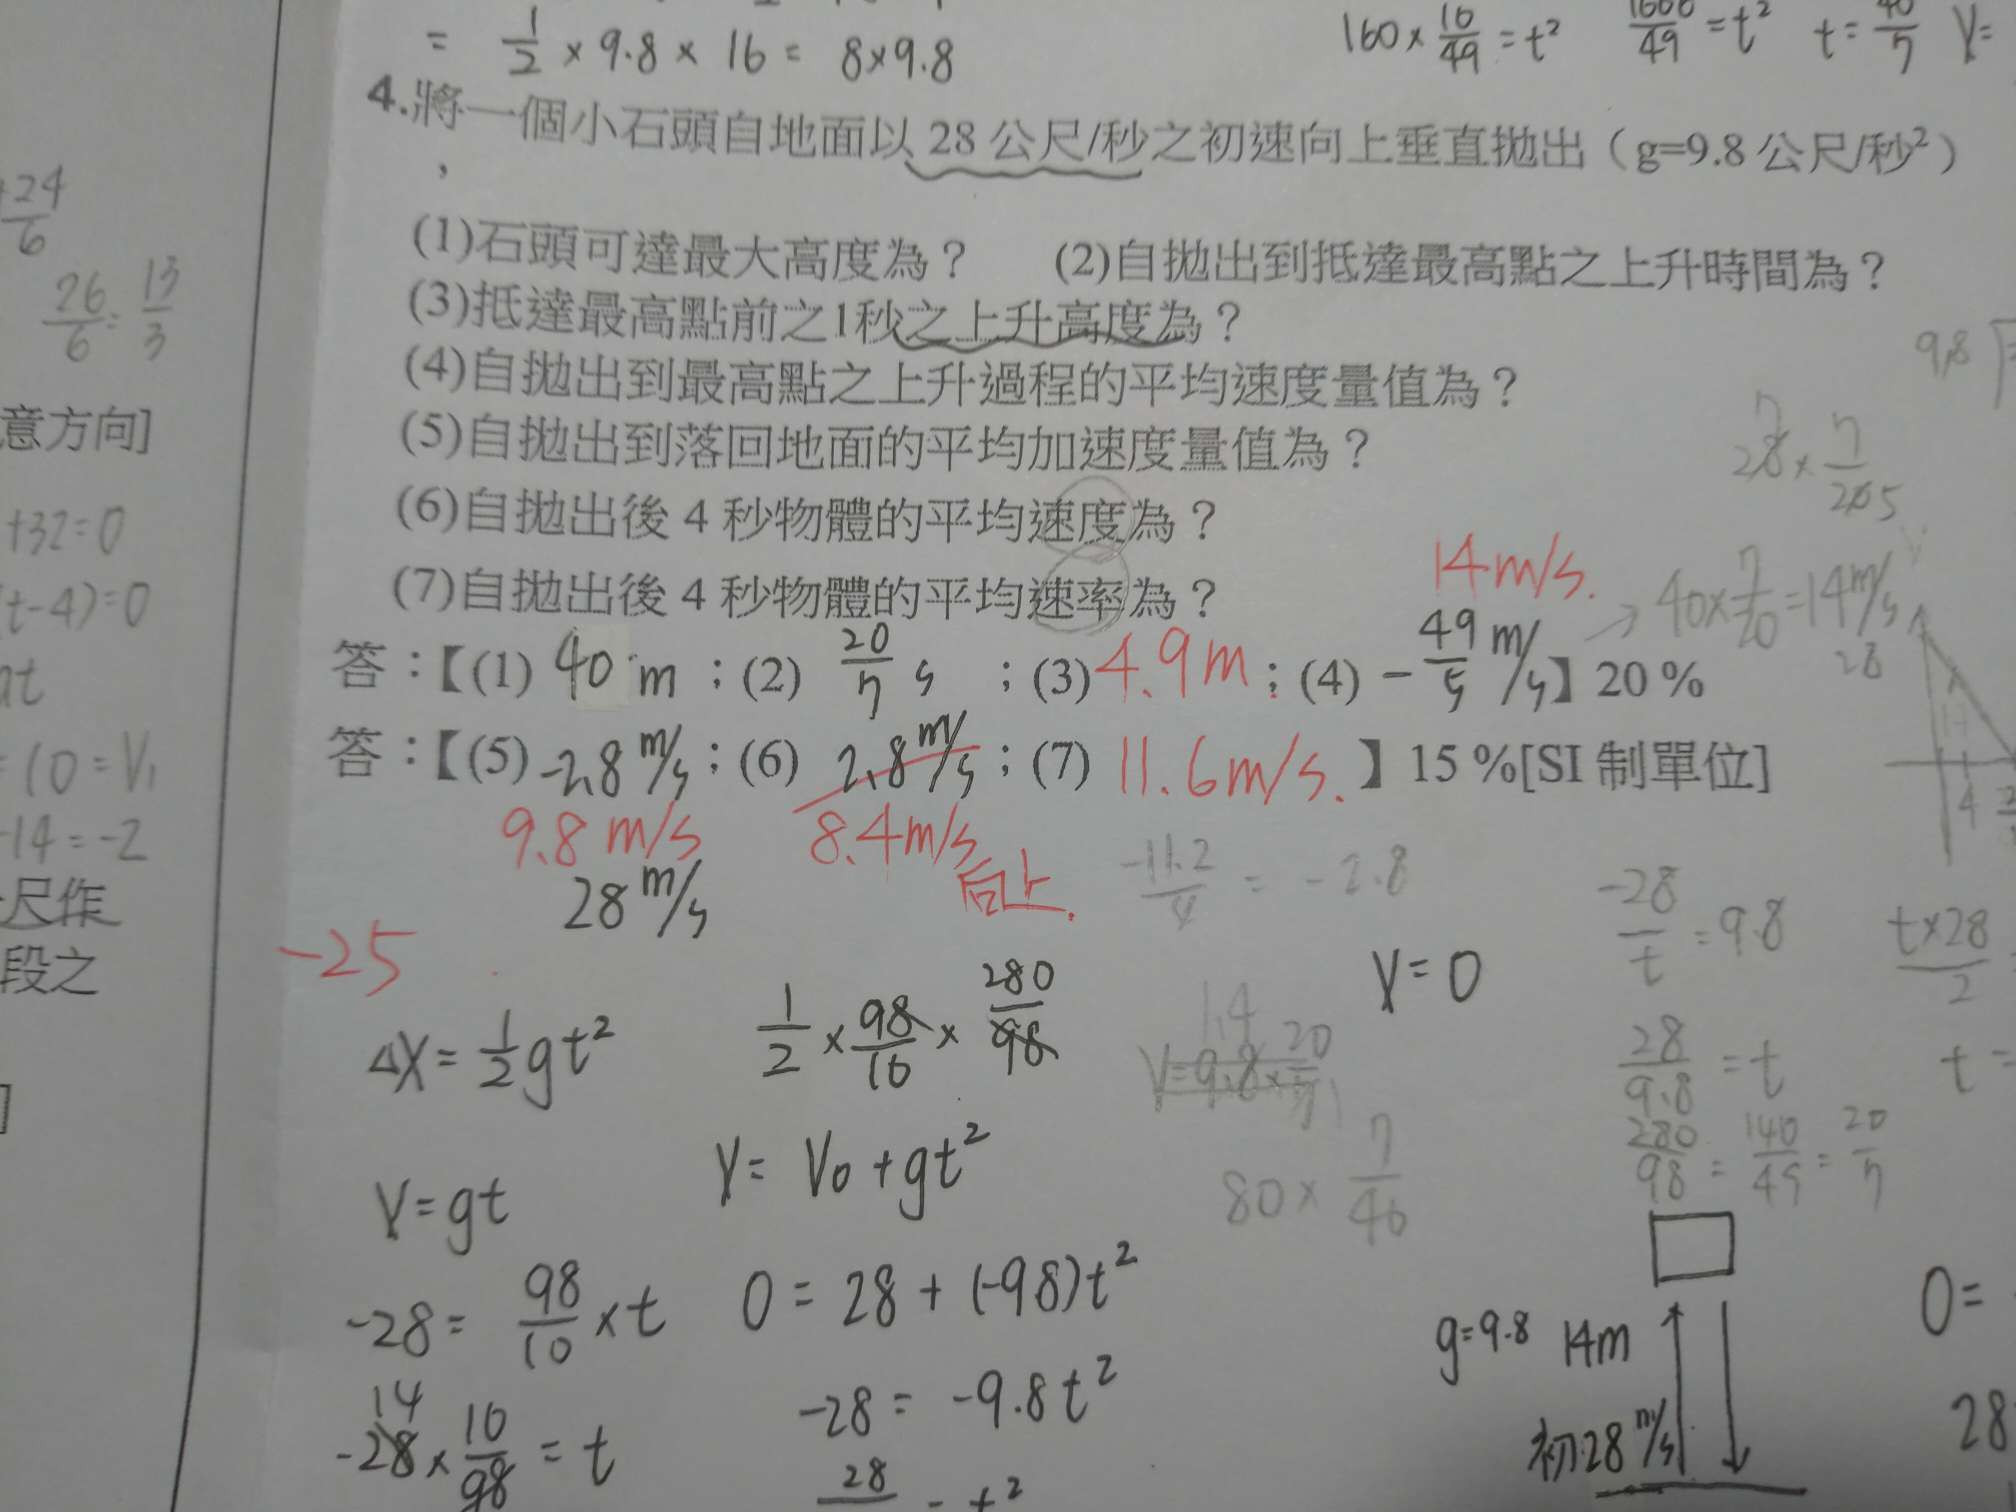 = 1/2 × 9.8 × 16 = 8×9.8
160 × 10/49 = t² 1600/49 = t² t = 40/7 V=
4.將一個小石頭自地面以 28 公尺/秒之初速向上垂直拋出（g=9.8 公尺/秒²）
，
(1)石頭可達最大高度為？ (2)自拋出到抵達最高點之上升時間為？
(3)抵達最高點前之1秒之上升高度為？
(4)自拋出到最高點之上升過程的平均速度量值為？
(5)自拋出到落回地面的平均加速度量值為？
(6)自拋出後 4 秒物體的平均速度為？
(7)自拋出後 4 秒物體的平均速率為？
14m/s.
40×7/20=14m/s
答：【(1) 40 m ；(2) 20/7 s ；(3) 4.9m ；(4) - 49/5 m/s】20 %
答：【(5) -2.8 m/s；(6) 2.8 m/s；(7) 11.6m/s. 】15 %[SI 制單位]
9.8 m/s 8.4m/s 向上.
28 m/s
-25
-11.2/4 = -2.8
-28/t = 9.8
t×28/2
V=0
ΔX = 1/2 gt²
1/2 × 98/10 × 280/98
V=9.8×20/7
28/9.8 = t
t =
280/98 = 140/49 = 20/7
V= gt
V= V0 +gt²
80×7/40
-28= 98/10 ×t
0 = 28 + (-9.8)t²
g=9.8 14m
0=
-28 × 10/98 = t
14
-28 = -9.8t²
初28 m/s
28
28
= t²
+24/6
26/6 = 13/3
意方向]
+32=0
(t-4)=0
=10=V₁
-14=-2
尺作
段之
]
9.8
28× 7/20
28
4